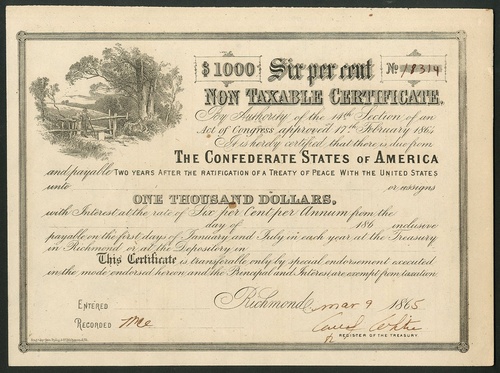 $1000 Six per cent No 18314
NON TAXABLE CERTIFICATE.
By Authority of the 14th Section of an
Act of Congress, approved 17th February 1864
It is hereby certified, that there is due from
THE CONFEDERATE STATES OF AMERICA
and payable TWO YEARS AFTER THE RATIFICATION OF A TREATY OF PEACE WITH THE UNITED STATES
unto or assigns
ONE THOUSAND DOLLARS,
with Interest at the rate of Six per Cent per Annum from the
day of 186 inclusive
payable on the first days of January and July in each year at the Treasury
in Richmond or at the Depository in
This Certificate is transferable only by special endorsement executed
in the mode endorsed hereon and the Principal and Interest are exempt from taxation
ENTERED Richmond, Mar 9 1865
RECORDED
REGISTER OF THE TREASURY